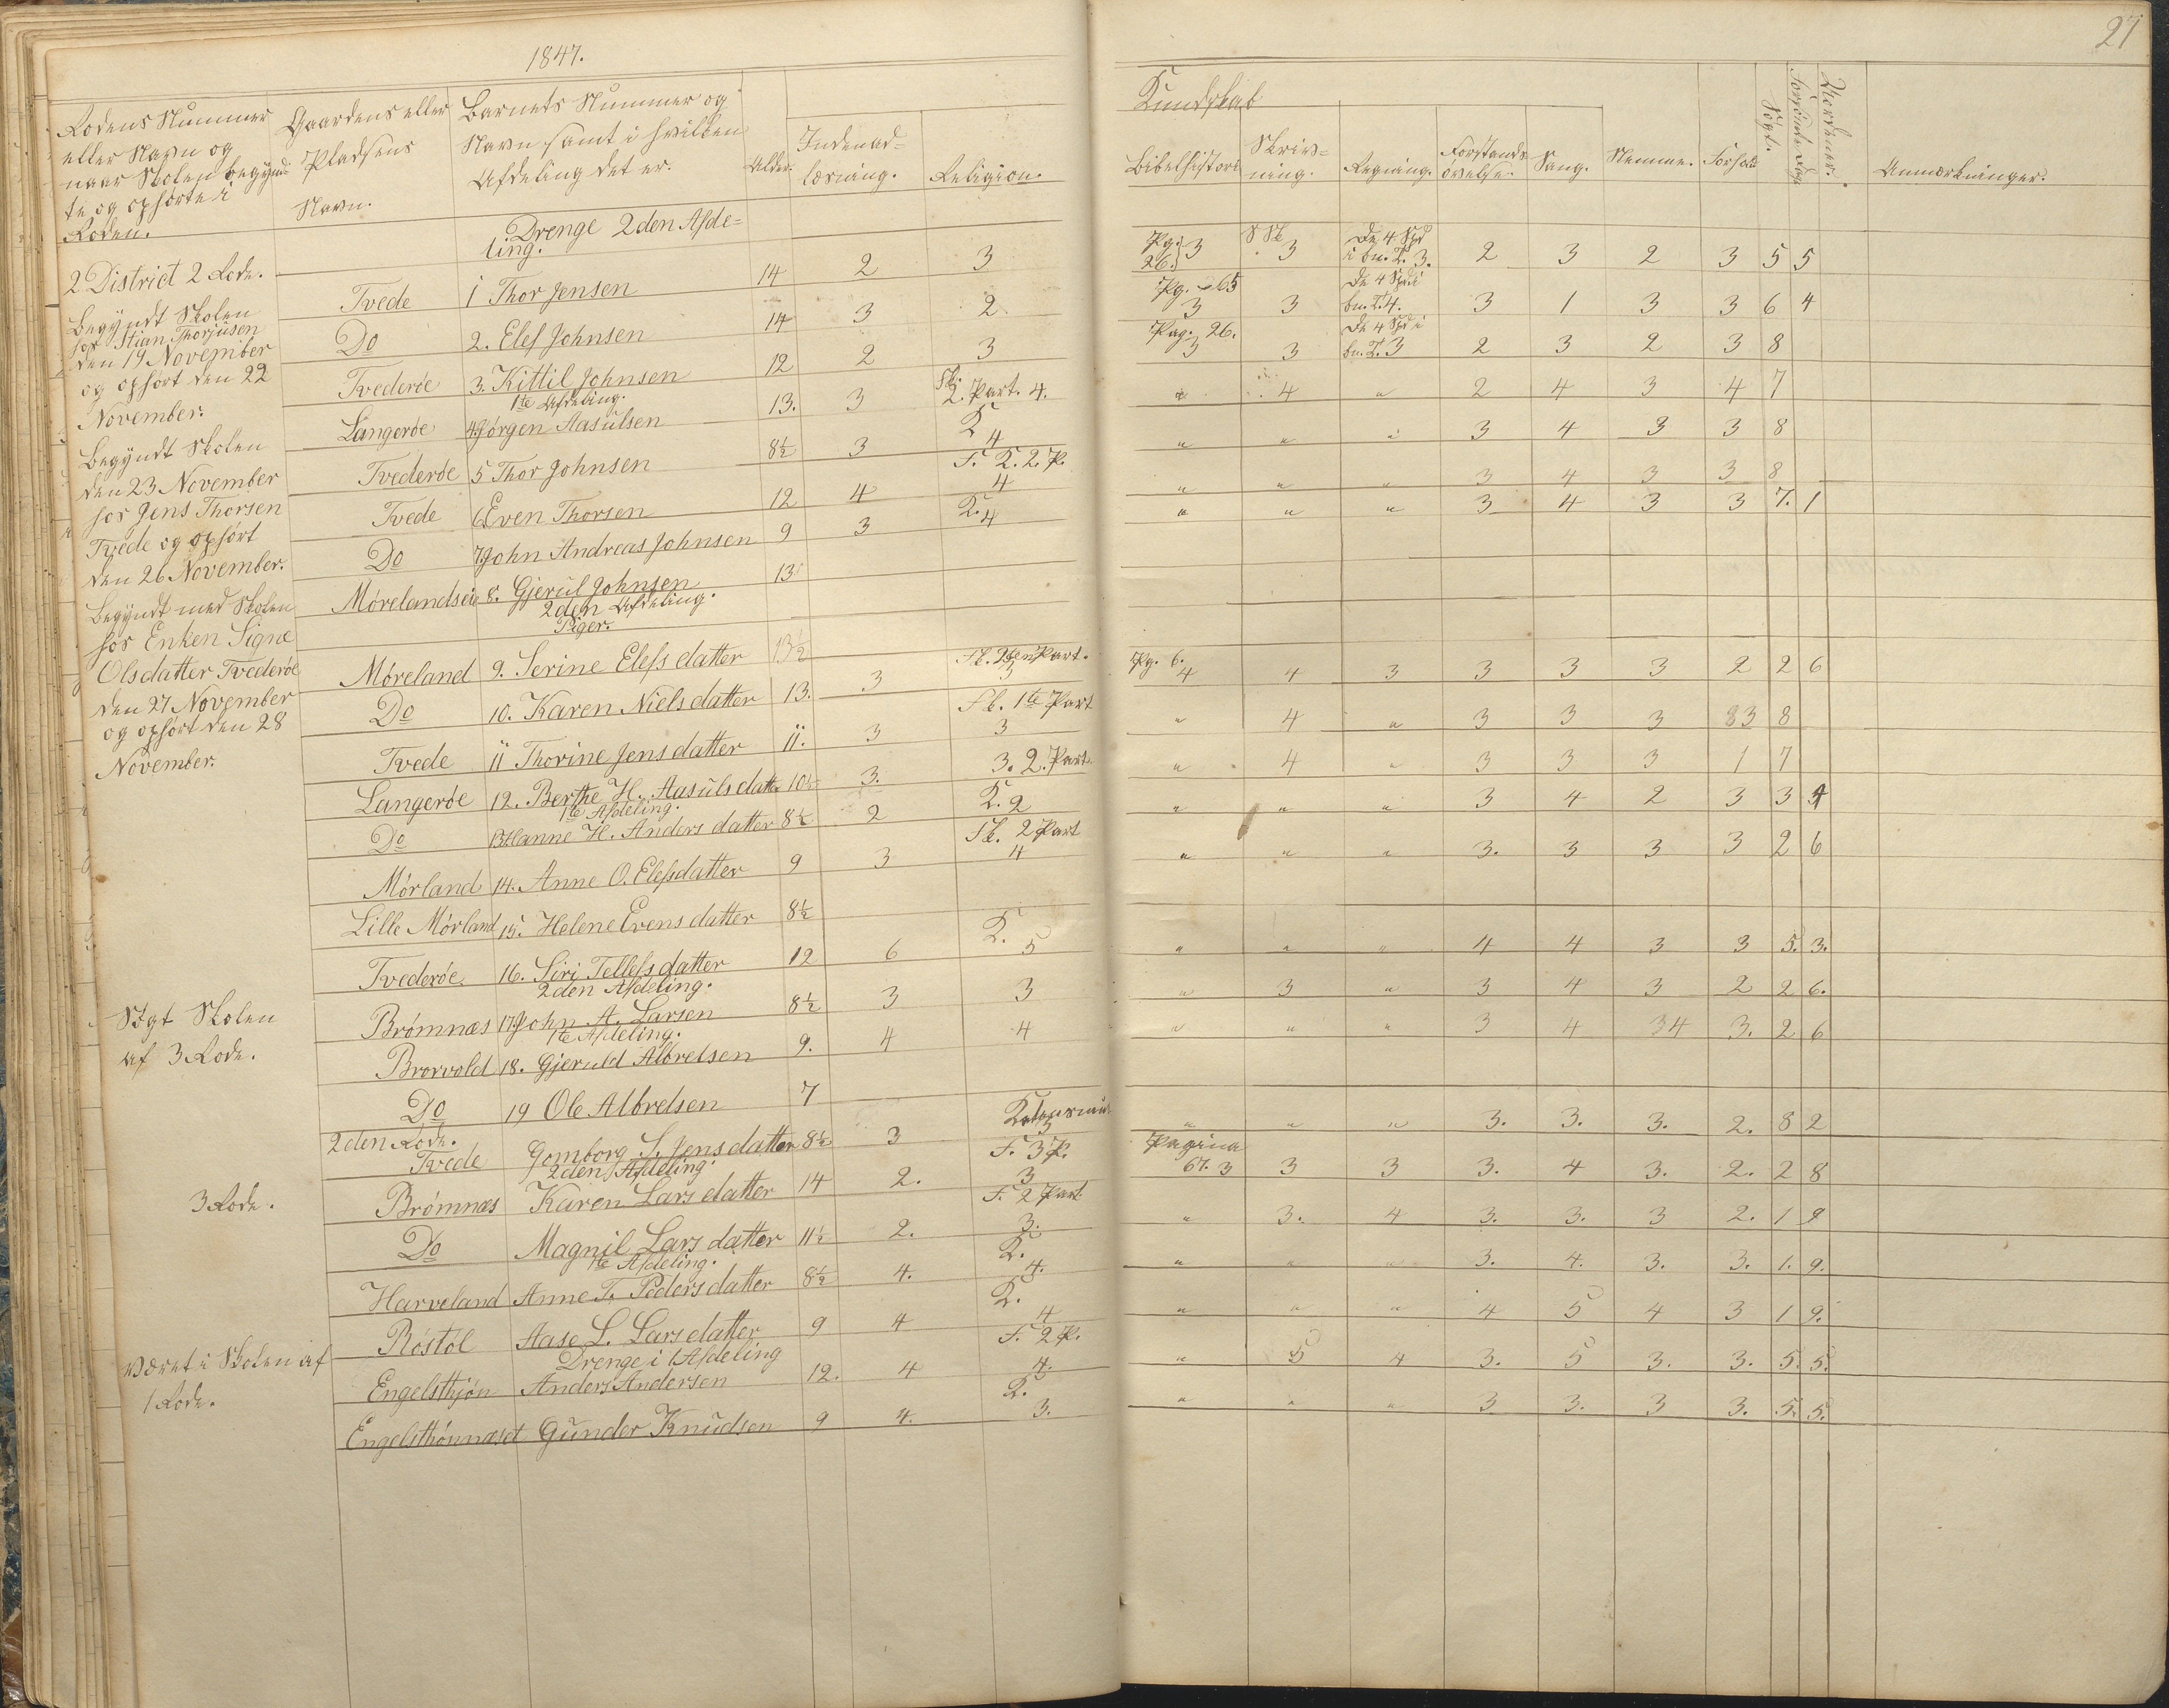 1847.
27
Rodens Nummer eller Navn og naar Skolen begyndte og ophørte i Roden.
Gaardens eller Pladsens Navn.
Barnets Nummer og Navn samt i hvilken Afdeling det er.
Alder.
Indenadlæsning.
Religion.
Kundskab
Bibelhistorie
Skrivning.
Regning.
Forstandsøvelse.
Sang.
Nemme.
Forhold
Søgt.
Forsømte Dage
Anmærkninger.
2 District 2 Rode.
Begyndt Skolen
hos Stian Thorjüsen
den 19 November
og ophørt den 22
November.
Begyndt Skolen
den 23 November
hos Jens Thorsen
Tvede og ophørt
den 26 November.
Begyndt med Skolen
hos Enken Signe
Olsdatter Tvederöe
den 27 November
og ophørt den 28
November.
Søgt Skolen
af 3 Rode.
3 Rode.
været i Skolen af
1 Rode.
Drenge 2den Afdeling.
Tvede 1 Thor Jensen 14 2 3 Pg. 26. 3 3 De 4 Spd i bn. T. 3. 2 3 2 3 5 5
Do 2. Elef Johnsen 14 3 2 Pg. 65 3 3 De 4 Spd i bn. T. 4. 3 1 3 3 6 4
Tvederöe 3. Kittil Johnsen 12 2 3 Pag. 26. 3 3 De 4 Spd i bn. T. 3 2 3 2 3 8
1te Afdeling.
Langeröe 4 Jörgen Aasülsen 13. 3 2. Part. 4. " 4 " 2 4 3 4 7
Tvederöe 5 Thor Johnsen 8½ 3 K 4 " " " 3 4 3 3 8
Tvede 6 Even Thorsen 12 4 F. K. 2. P. 4 " " " 3 4 3 3 8
Do 7 John Andreas Johnsen 9 3 K. 4 " " " 3 4 3 3 7. 1
Mörelandseie 8. Gjerül Johnsen 13
2den Afdeling.
Piger.
Möreland 9. Serine Elefsdatter 13½ 3 Fk. 2den Part. 3 Pg. 6. 4 4 3 3 3 3 2 2 6
Do 10. Karen Nielsdatter 13. 3 Fk. 1te Part 3 " 4 " 3 3 3 3 8
Tvede 11 Thorine Jensdatter 11. 3 3. 2. Part. " 4 " 3 3 3 1 7
Langeröe 12. Berthe H. Aasülsdatter 10½ 3. K. 2 " " " 3 4 2 3 3 4
1te Afdeling.
Do 13 Hanne H. Andersdatter 8½ 2 Fk. 2 Part 4 " " " 3. 3 3 3 2 6
Mörland 14. Anne O. Elefsdatter 9 3
Lille Mörland 15. Helene Evensdatter 8½
Tvederöe 16. Siri Tellefsdatter 12 6 K. 5 " " " 4 4 3 3 5. 3.
2den Afdeling.
Brömnæs 17 John A. Larsen 8½ 3 3 " 3 " 3 4 3 2 2 6.
1te Afdeling.
Brorvold 18. Gjeruld Albretsen 9. 4 4 " " " 3 4 34 3. 2 6
Do 19 Ole Albretsen 7
2den Rode.
Tvede Gomborg S. Jensdatter 8½ 3 3 " " " 3. 3. 3. 2. 8 2
2den Afdeling.
Brömnæs Karen Larsdatter 14 2. F. 3 P. 3 Pagina 67. 3 3 3 3. 4 3. 2. 2 8
Do Magnil Larsdatter 11½ 2. F. 2 Part 3. " 3. 4 3. 3. 3 2. 1 9
1te Afdeling.
Harveland Anne T. Pedersdatter 8½ 4. K. 4. " " " 3. 4. 3. 3. 1. 9.
Röstöl Aase L. Larsdatter 9 4 K. 4 " " " 4 5 4 3 1 9.
Drenge i 1 Afdeling
Engelsthjön Anders Andersen 12. 4 F. 2 P. 4. " 5 4 3. 5 3. 3. 5. 5.
Engelsthönnæset Günder Knüdsen 9 4. K. 3. " " " 3 3. 3 3. 5. 5.